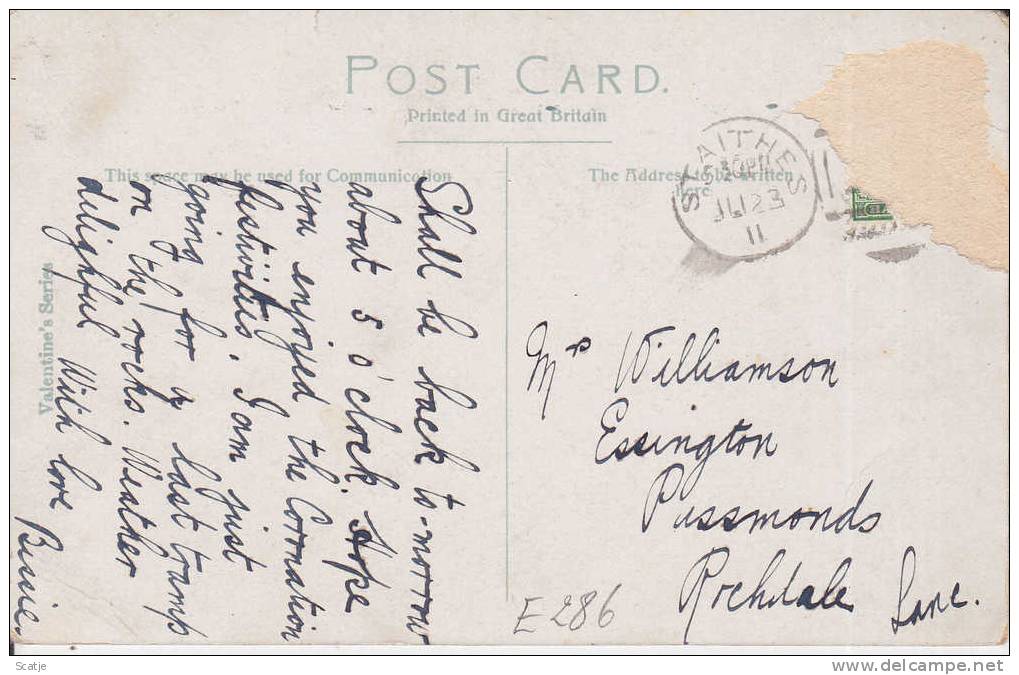 POST CARD.
Printed in Great Britain
This space may be used for Communication
The Address to be written
here
Valentine's Series
STAITHES
JU 23
11
Shall be back to-morrow
about 5 o'clock. Hope
you enjoyed the Coronation
festivities. I am just
going for a last tramp
on the rocks. Weather
delighful With love
Bessie.
Mrs Williamson
Essington
Passmonds
Rochdale
Lanc.
E 286
Scatje
http://scatje.delcampe.net